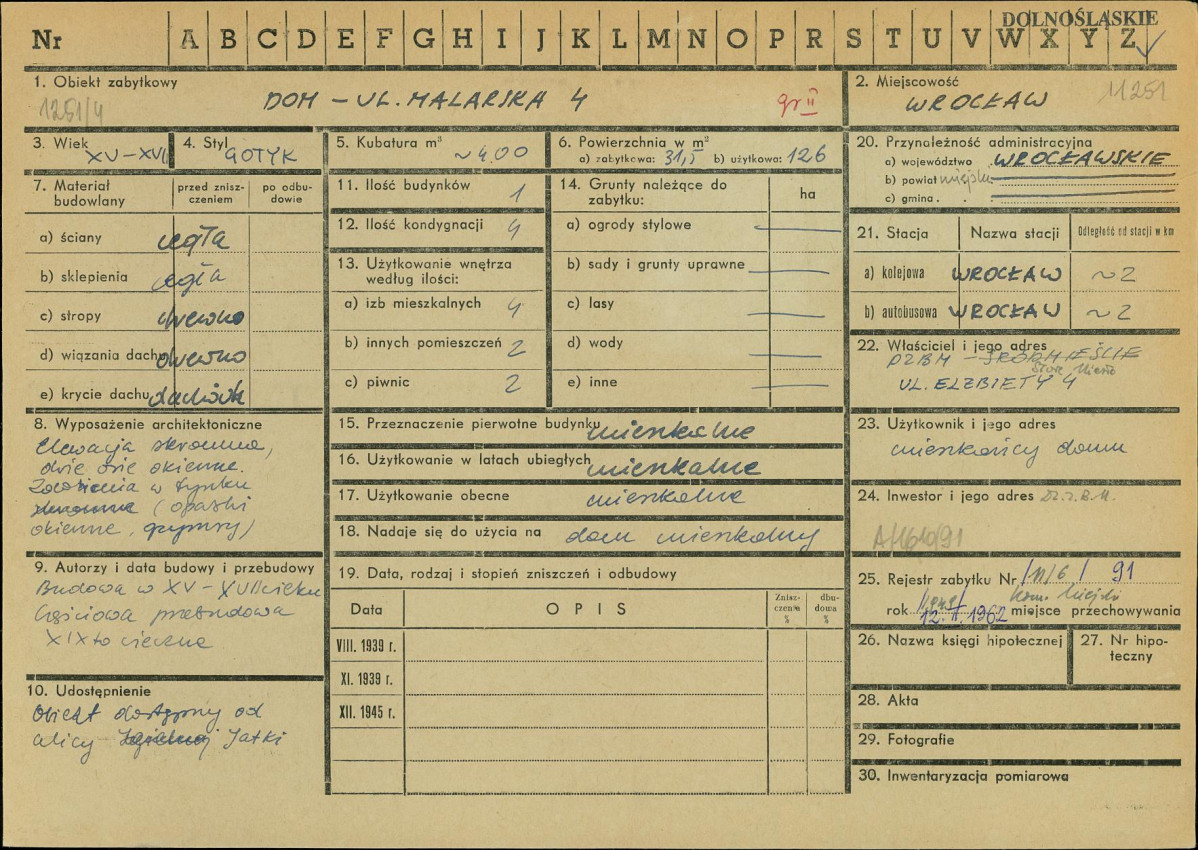 DOLNOŚLĄSKIE
Nr A B C D E F G H I J K L M N O P R S T U V W X Y Z
1. Obiekt zabytkowy
1251/4
DOM – UL. MALARSKA 4
gr II
2. Miejscowość
WROCŁAW
11251
3. Wiek XV–XVII
4. Styl GOTYK
5. Kubatura m³ ~400
6. Powierzchnia w m²
a) zabytkowa: 31,5 b) użytkowa: 126
7. Materiał budowlany
przed zniszczeniem
po odbudowie
a) ściany cegła
b) sklepienia cegła
c) stropy drewno
d) wiązania dachu drewno
e) krycie dachu dachówk
8. Wyposażenie architektoniczne
Elewacja skromna,
dwie osie okienne.
Zdobienia w tynku
skromne (opaski
okienne, gzymsy)
9. Autorzy i data budowy i przebudowy
Budowa w XV – XVII wieku
Częściowa przebudowa
XIXto wieczna
10. Udostępnienie
Obiekt dostępny od
ulicy Jatki
11. Ilość budynków 1
12. Ilość kondygnacji 4
13. Użytkowanie wnętrza
według ilości:
a) izb mieszkalnych 4
b) innych pomieszczeń 2
c) piwnic 2
14. Grunty należące do
zabytku:
ha
a) ogrody stylowe —
b) sady i grunty uprawne —
c) lasy —
d) wody —
e) inne —
15. Przeznaczenie pierwotne budynku mieszkalne
16. Użytkowanie w latach ubiegłych mieszkalne
17. Użytkowanie obecne mieszkalne
18. Nadaje się do użycia na dom mieszkalny
19. Data, rodzaj i stopień zniszczeń i odbudowy
Data
OPIS
Zniszczenie %
dbudowa %
VIII. 1939 r.
XI. 1939 r.
XII. 1945 r.
20. Przynależność administracyjna
a) województwo WROCŁAWSKIE
b) powiat miejski
c) gmina
21. Stacja
Nazwa stacji
Odległość od stacji w km
a) kolejowa WROCŁAW ~2
b) autobusowa WROCŁAW ~2
22. Właściciel i jego adres
DZBM – ŚRÓDMIEŚCIE
Stare Miasto
UL. ELŻBIETY 4
23. Użytkownik i jego adres
mieszkańcy domu
24. Inwestor i jego adres Dz.Z.B.M.
A/1610/91
25. Rejestr zabytku Nr 91
rok 12.II.1962 miejsce przechowywania
Kons. Miejski
26. Nazwa księgi hipotecznej
27. Nr hipoteczny
28. Akta
29. Fotografie
30. Inwentaryzacja pomiarowa